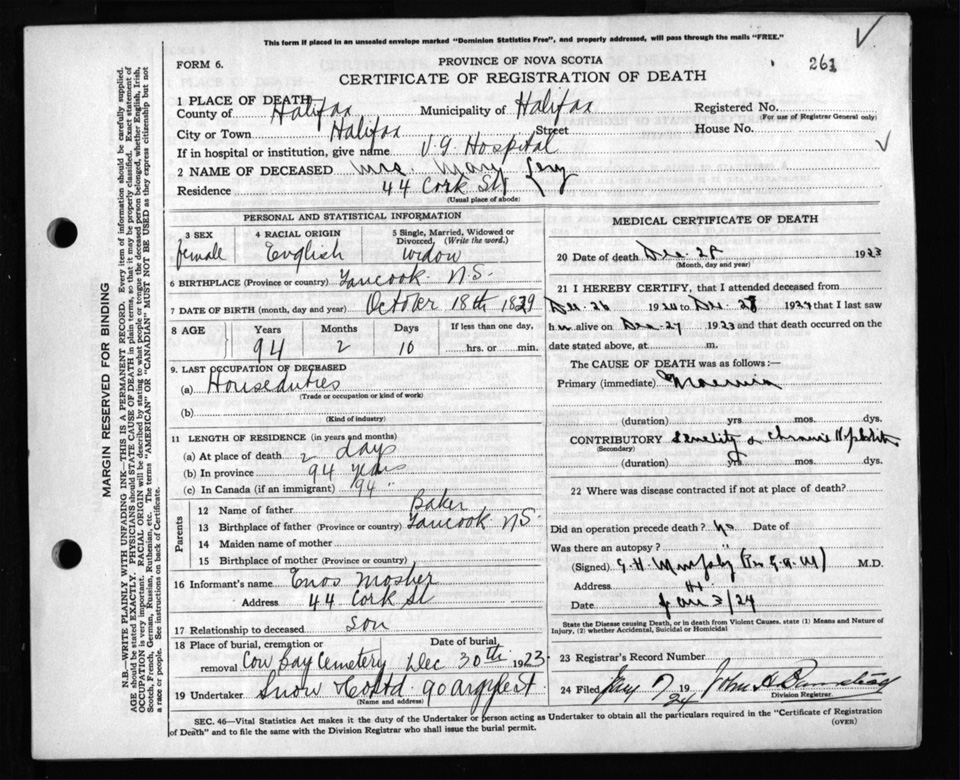 This form if placed in an unsealed envelope marked "Dominion Statistics Free", and properly addressed, will pass through the mails "FREE."
FORM 6.
PROVINCE OF NOVA SCOTIA
261
CERTIFICATE OF REGISTRATION OF DEATH
1 PLACE OF DEATH
County of Halifax Municipality of Halifax Registered No.
(For use of Registrar General only)
City or Town Halifax Street House No.
If in hospital or institution, give name V.G. Hospital
2 NAME OF DECEASED Mrs. Mary Levy
Residence 44 Cork St
(Usual place of abode)
PERSONAL AND STATISTICAL INFORMATION
3 SEX 4 RACIAL ORIGIN 5 Single, Married, Widowed or Divorced, (Write the word.)
female English Widow
6 BIRTHPLACE (Province or country) Tancook N.S.
7 DATE OF BIRTH (month, day and year) October 18th 1829
8 AGE Years Months Days If less than one day,
94 2 10 hrs. or min.
9. LAST OCCUPATION OF DECEASED
(a) Houseduties
(Trade or occupation or kind of work)
(b)
(Kind of industry)
11 LENGTH OF RESIDENCE (in years and months)
(a) At place of death 2 days
(b) In province 94 years
(c) In Canada (if an immigrant) 94 "
Parents
12 Name of father Baker
13 Birthplace of father (Province or country) Tancook N.S.
14 Maiden name of mother
15 Birthplace of mother (Province or country)
16 Informant's name Enos Mosher
Address 44 Cork St
17 Relationship to deceased son
18 Place of burial, cremation or removal Date of burial,
Cow Bay Cemetery Dec 30th 1923
19 Undertaker Snow & Co Ltd 90 Argyle St
(Name and address)
MEDICAL CERTIFICATE OF DEATH
20 Date of death Dec. 28 1923
(Month, day and year)
21 I HEREBY CERTIFY, that I attended deceased from
Dec. 26 19 to Dec. 28 192 that I last saw
h alive on Dec. 27 1923 and that death occurred on the
date stated above, at m.
The CAUSE OF DEATH was as follows:—
Primary (immediate)
(duration) yrs mos. dys.
CONTRIBUTORY Senility & chronic Nephritis
(Secondary)
(duration) yrs mos. dys.
22 Where was disease contracted if not at place of death?
Did an operation precede death? no Date of
Was there an autopsy? "
(Signed) G.H. Murphy M.D.
Address
Date Jan 3/24
State the Disease causing Death, or in death from Violent Causes, state (1) Means and Nature of Injury, (2) whether Accidental, Suicidal or Homicidal
23 Registrar's Record Number
24 Filed Jany 7 1924 John A
Division Registrar.
SEC. 46—Vital Statistics Act makes it the duty of the Undertaker or person acting as Undertaker to obtain all the particulars required in the "Certificate of Registration
of Death" and to file the same with the Division Registrar who shall issue the burial permit.
(OVER)
MARGIN RESERVED FOR BINDING
N.B.—WRITE PLAINLY WITH UNFADING INK—THIS IS A PERMANENT RECORD. Every item of information should be carefully supplied.
AGE should be stated EXACTLY. PHYSICIANS should STATE CAUSE OF DEATH in plain terms, so that it may be properly classified. Exact statement of
OCCUPATION is very important. RACIAL ORIGIN will be described by stating to what people or tongue the deceased person belonged, whether English, Irish,
Scotch, French, German, Russian, Ruthenian, etc. The terms "AMERICAN" OR "CANADIAN" MUST NOT BE USED as they express citizenship but not
a race or people. See instructions on back of Certificate.